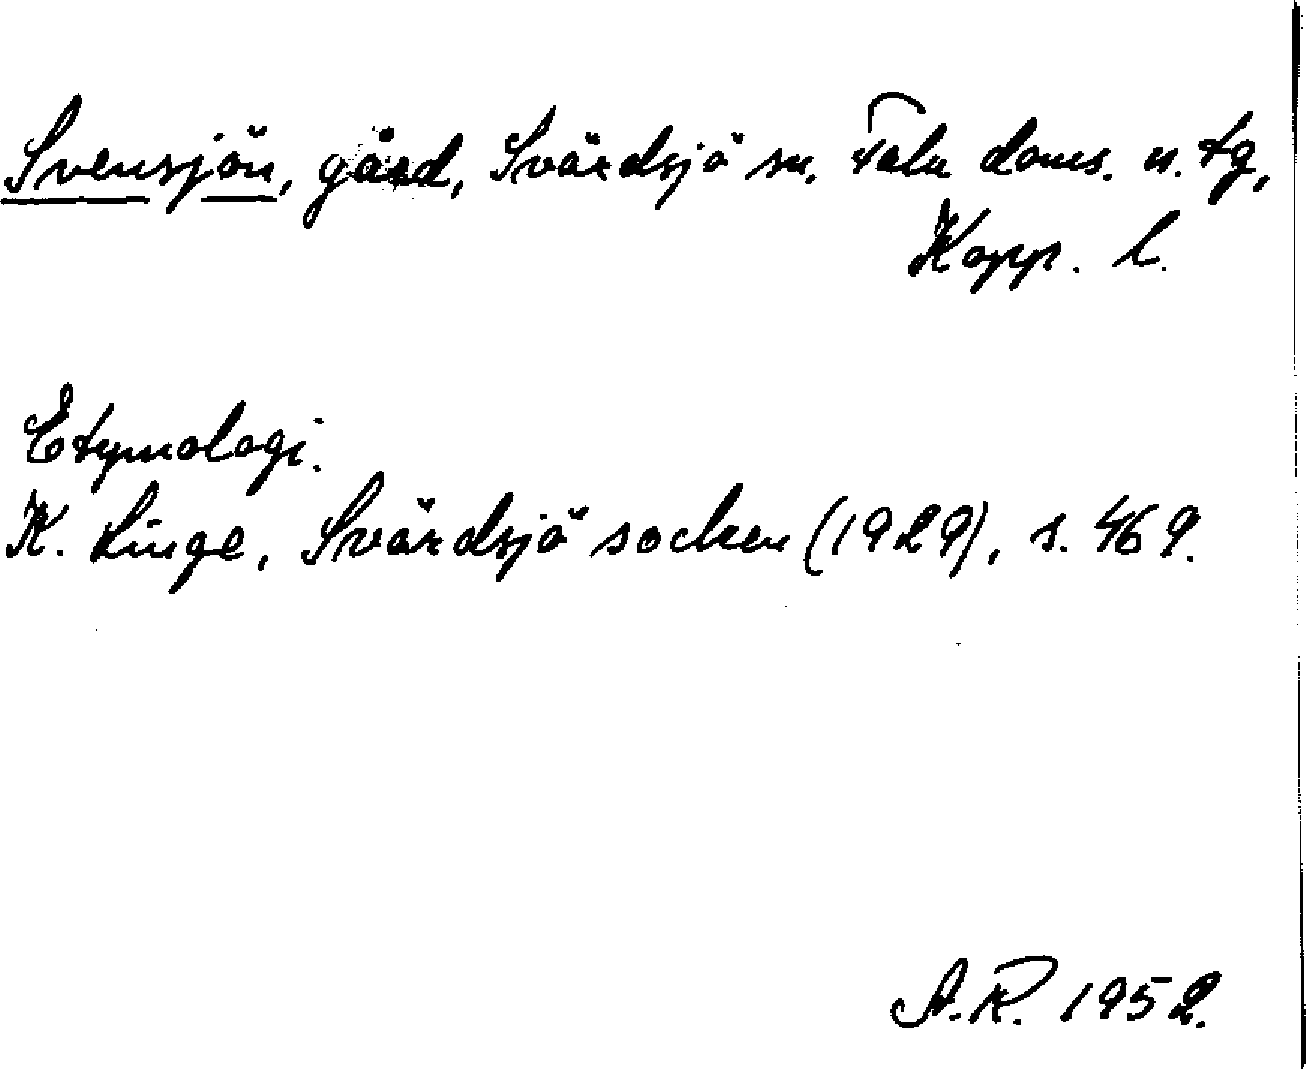 Svensjön, gård, Svärdsjö sn. Falu doms. o. tg,
Kopp. l.
Etymologi.
K. Linge, Svärdsjö socken (1929), s. 469.
A.R. 1952.